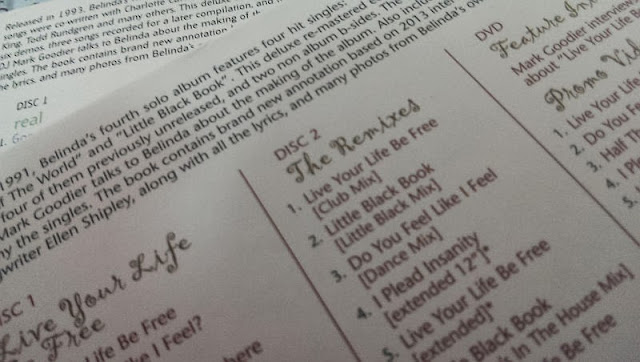 Released in 1993, Belinda's
songs were cowritten with Charlotte
King, Todd Rundgren and many others. This deluxe
six demos, three songs recorded for a later compilation, and
DJ Mark Goodier talks to Belinda about the making of
singles. The book contains brand new annotation
the lyrics, and many photos from Belinda's
DISC 1
real
1.
1991, Belinda's fourth solo album features four hit singles:
The World" and "Little Black Book". This deluxe re-mastered
four of them previously unreleased, and two non album b-sides. The
Mark Goodier talks to Belinda about the making of the album. Also
by the singles. The book contains brand new annotation based on 2013
writer Ellen Shipley, along with all the lyrics, and many photos from Belinda's
DISC 1
Live Your Life
Be Free
Life Be Free
Like I Feel?
DISC 2
The Remixes
1. Live Your Life Be Free
[Club Mix]
2. Little Black Book
[Little Black Mix]
3. Do You Feel Like I Feel
[Dance Mix]
4. I Plead Insanity
[extended 12"]*
5. Live Your Life Be Free
[extended]*
Black Book
In The House Mix]
Be Free
DVD
Feature
Mark Goodier
about "Live Your Life
Promo
1. Live Your
2. Do You
3. Half The
4. I
5.